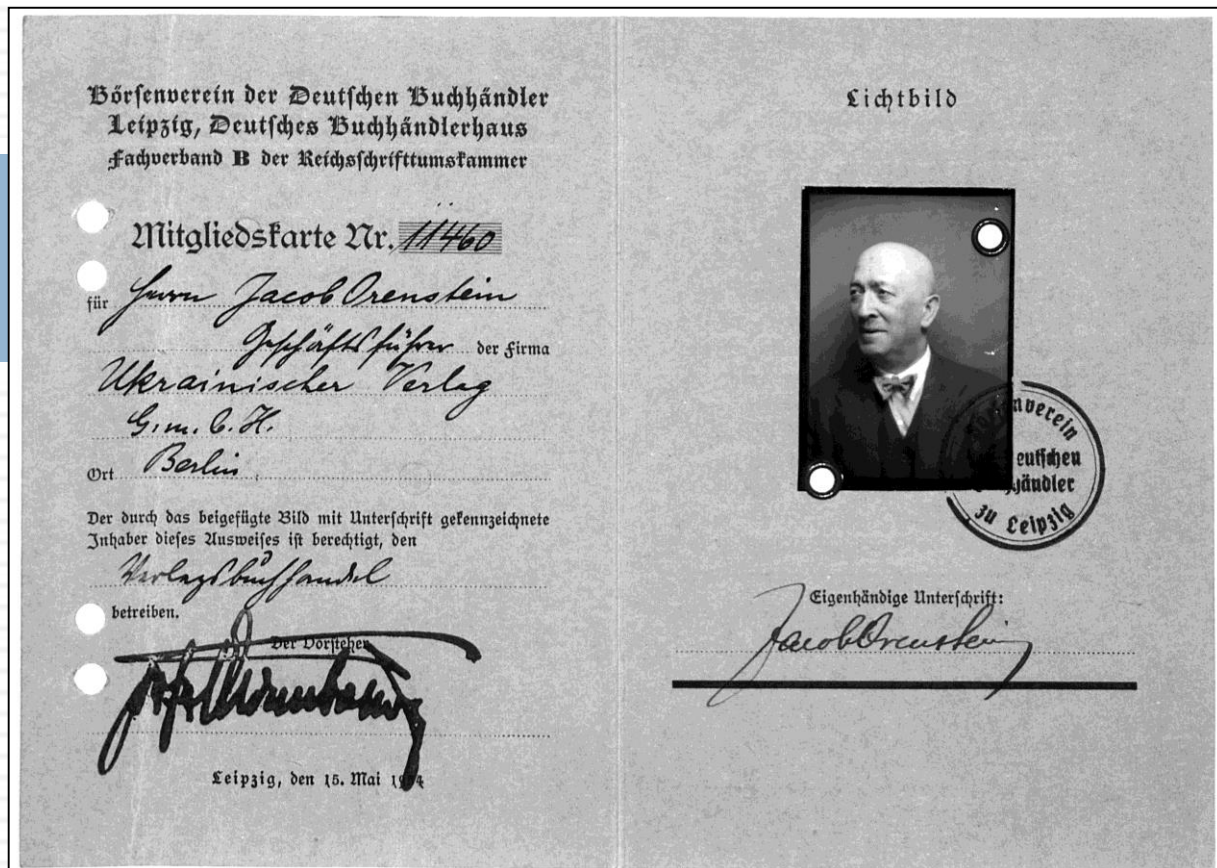 Börsenverein der Deutschen Buchhändler
Leipzig, Deutsches Buchhändlerhaus
Fachverband B der Reichsschrifttumskammer
Mitgliedskarte Nr. 11460
für Herrn Jacob Orenstein
Geschäftsführer der Firma
Ukrainischer Verlag
G.m.b.H.
Ort Berlin
Der durch das beigefügte Bild mit Unterschrift gekennzeichnete
Inhaber dieses Ausweises ist berechtigt, den
Verlagsbuchhandel
betreiben.
Der Vorsteher
Leipzig, den 15. Mai
Lichtbild
nverein
eutschen
händler
zu Leipzig
Eigenhändige Unterschrift:
Jacob Orenstein